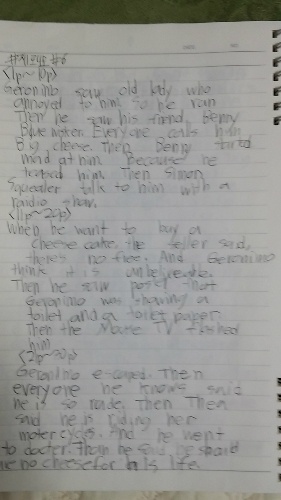 <1p~10p>
Geronimo saw old lady who
annoyed to him. so he ran
Then he saw his firend, Benny
Bluewhisker. Everyone calls him
Big cheese. Then Benny
mad at him Because he
him. Then Simon
Squealer talk to him with a
raidio show.
<11p~20p>
When he want to buy a
cheese cake, the teller said,
theres no free. And Geronimo
think it is
Then he saw poster that
Geronimo was having a
toilet and a toilet paper.
Then the Mouse TV flashed
him
<21p~30p>
Geronimo Then
everyone he knows said
he is so rude. Then Thea
said he is riding her
motercycles. And he went
to docter. than he said he
no cheese for his life.